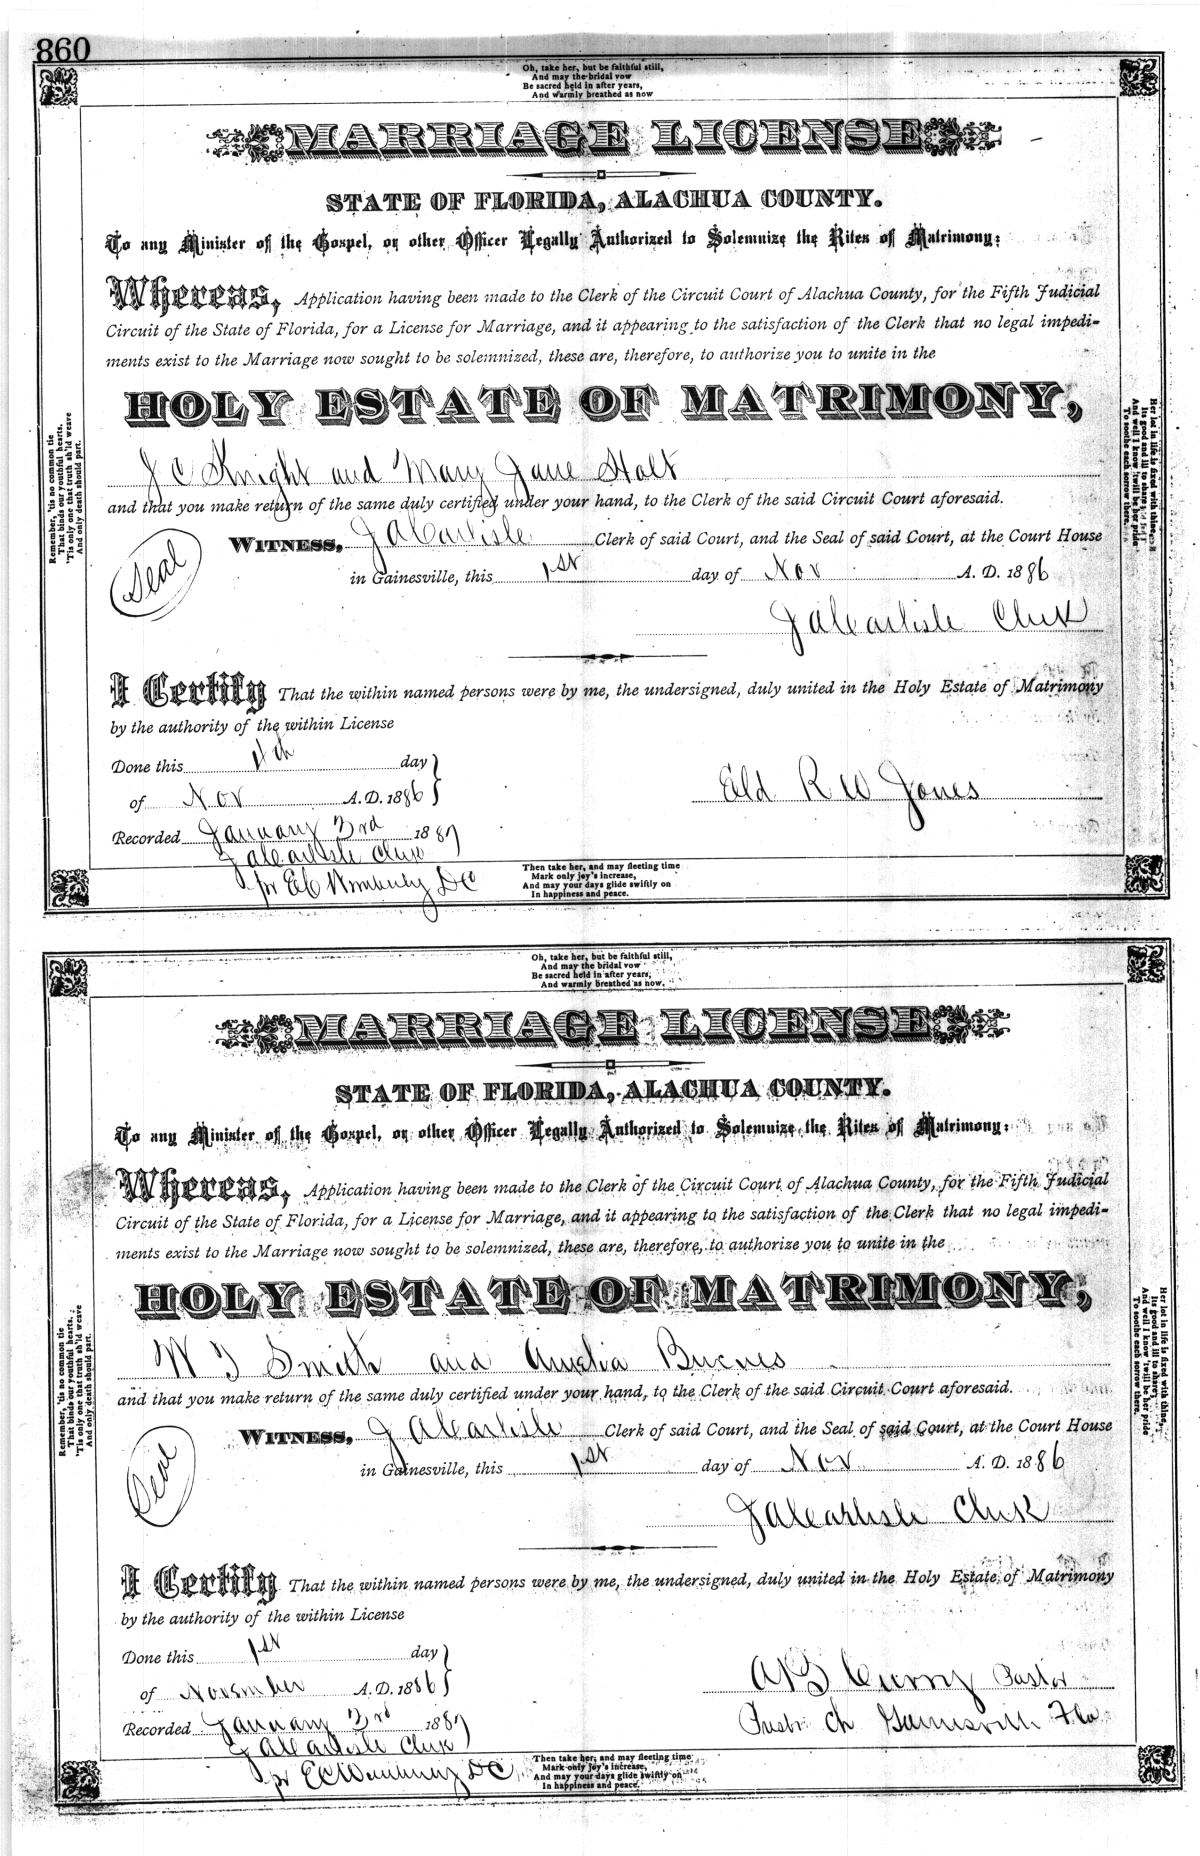 860
Oh, take her, but be faithful still,
And may the bridal vow
Be sacred held in after years,
And warmly breathed as now
MARRIAGE LICENSE
STATE OF FLORIDA, ALACHUA COUNTY.
To any Minister of the Gospel, or other Officer Legally Authorized to Solemnize the Rites of Matrimony:
Whereas, Application having been made to the Clerk of the Circuit Court of Alachua County, for the Fifth Judicial
Circuit of the State of Florida, for a License for Marriage, and it appearing to the satisfaction of the Clerk that no legal impedi-
ments exist to the Marriage now sought to be solemnized, these are, therefore, to authorize you to unite in the
HOLY ESTATE OF MATRIMONY,
J C Knight and Mary Jane Holt
and that you make return of the same duly certified under your hand, to the Clerk of the said Circuit Court aforesaid.
WITNESS, J A Carlisle Clerk of said Court, and the Seal of said Court, at the Court House
Seal
in Gainesville, this 1st day of Nov A. D. 1886
J A Carlisle Clerk
I Certify That the within named persons were by me, the undersigned, duly united in the Holy Estate of Matrimony
by the authority of the within License
Done this day
of Nov A. D. 1886
Eld R W Jones
Recorded January 3rd 1887
J A Carlisle Clerk
pr E C Wimberly D C
Remember, 'tis no common tie
That binds our youthful hearts,
'Tis only one that truth sh'ld weave
And only death should part.
Her lot in life is fixed with thine,
Its good and ill to share,
And well I know 'twill be her pride
To soothe each sorrow there.
Then take her, and may fleeting time
Mark only joy's increase,
And may your days glide swiftly on
In happiness and peace.
Oh, take her, but be faithful still,
And may the bridal vow
Be sacred held in after years,
And warmly breathed as now.
MARRIAGE LICENSE
STATE OF FLORIDA, ALACHUA COUNTY.
To any Minister of the Gospel, or other Officer Legally Authorized to Solemnize the Rites of Matrimony:
Whereas, Application having been made to the Clerk of the Circuit Court of Alachua County, for the Fifth Judicial
Circuit of the State of Florida, for a License for Marriage, and it appearing to the satisfaction of the Clerk that no legal impedi-
ments exist to the Marriage now sought to be solemnized, these are, therefore, to authorize you to unite in the
HOLY ESTATE OF MATRIMONY,
W J Smith and Amelia Burnes
and that you make return of the same duly certified under your hand, to the Clerk of the said Circuit Court aforesaid.
WITNESS, J A Carlisle Clerk of said Court, and the Seal of said Court, at the Court House
Seal
in Gainesville, this 1st day of Nov A. D. 1886
J A Carlisle Clerk
I Certify That the within named persons were by me, the undersigned, duly united in the Holy Estate of Matrimony
by the authority of the within License
Done this 1st day
of November A. D. 1886
Curry Pastor
Presbr Ch Gainesville Fla
Recorded January 3rd 1887
J A Carlisle Clerk
pr E C Wimberly D C
Remember, 'tis no common tie
That binds our youthful hearts,
'Tis only one that truth sh'ld weave
And only death should part.
Her lot in life is fixed with thine,
Its good and ill to share,
And well I know 'twill be her pride
To soothe each sorrow there.
Then take her, and may fleeting time
Mark only joy's increase,
And may your days glide swiftly on
In happiness and peace.